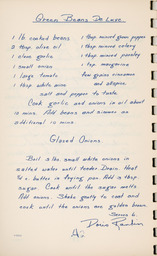 Green Beans De Luxe
1 lb cooked beans 1 tbsp minced green pepper
2 tbsp olive oil 1 tbsp minced celery
1 clove garlic 1 tbsp minced parsley
1 small onion 1 tsp margarine
1 large tomato few grains cinnamon
1 tbsp white wine and
salt and pepper to taste
Cook garlic and onions in oil about
10 mins. Add beans and simmer an
additional 10 mins.
Glazed Onions
Boil 2 lbs small white onions in
salted water until tender. Drain. Heat
butter in frying pan. Add 2 tbsp
sugar. Cook until the sugar melts
Add onions. Shake gently to coat and
cook until the onions are golden brown.
Serves 6.